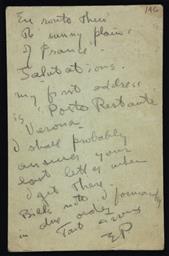 146
En route thru'
the sunny plains
of France.
Salutations.
my first address
is "Posto Restante
Verona"
I shall probably
answer your
last letter when
I get there.
Bill forward
in due order
EP